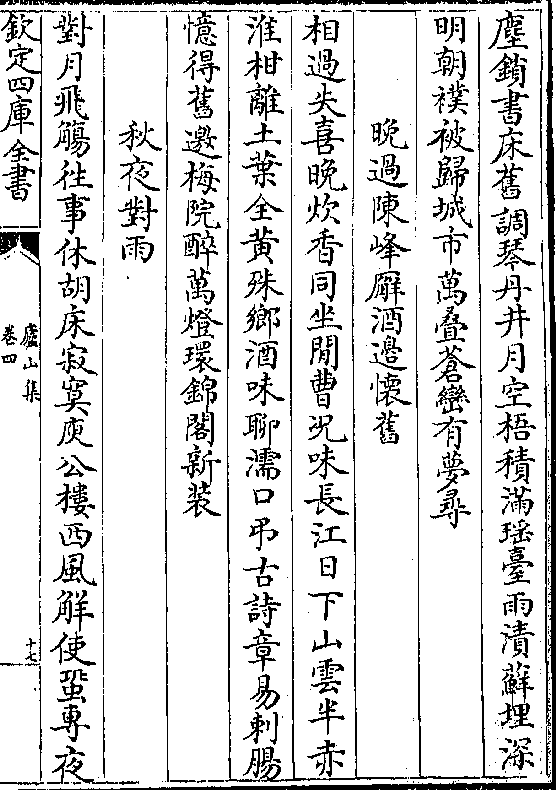 塵鎖書床舊調琴丹井月空梧積滿瑶臺雨漬蘚埋深
明朝襆被歸城市萬叠蒼巒有夢尋
晚過陳峰廨酒邉懷舊
相過失喜晚炊香同坐閒曹况味長江日下山雲半赤
淮柑離土葉全黄殊鄉酒味聊濡口弔古詩章易刺腸
憶得舊邀梅院醉萬燈環錦閣新装
秋夜對雨
對月飛觴往事休胡床寂寞庾公樓西風解使蛩專夜
欽定四庫全書
廬山集
卷四
十七